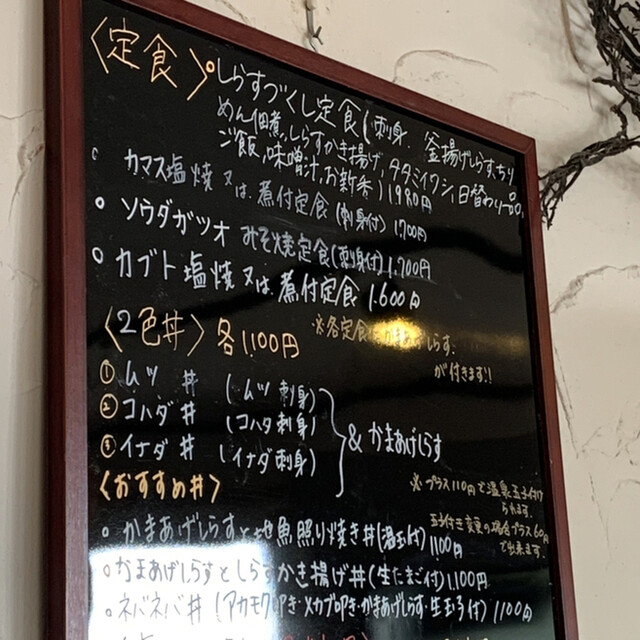 〈定食〉
しらすづくし定食(刺身、釜揚げしらす、ちり
めん佃煮、しらすかき揚げ、タタミイワシ、日替わり一品、
ご飯、味噌汁、お新香) 1980円
カマス塩焼又は煮付定食(刺身付) 1700円
ソウダガツオ みそ焼定食(刺身付) 1.700円
カブト塩焼又は煮付定食 1.600円
※各定食に かまあげしらす
が付きます!!
〈2色丼〉各1.100円
① ムツ 丼 (ムツ刺身)
② コハダ丼 (コハダ刺身)
③ イナダ丼 (イナダ刺身)
& かまあげしらす
※プラス110円で温泉玉子付け
られます。
玉子付き変更の場合プラス60円
で出来ます。
〈おすすめ丼〉
かまあげしらすと地魚照り焼き丼(温玉付) 1100円
かまあげしらすとしらすかき揚げ丼(生たまご付) 1,100円
ネバネバ丼(アカモク叩き・メカブ叩き・かまあげしらす・生玉子付) 1100円